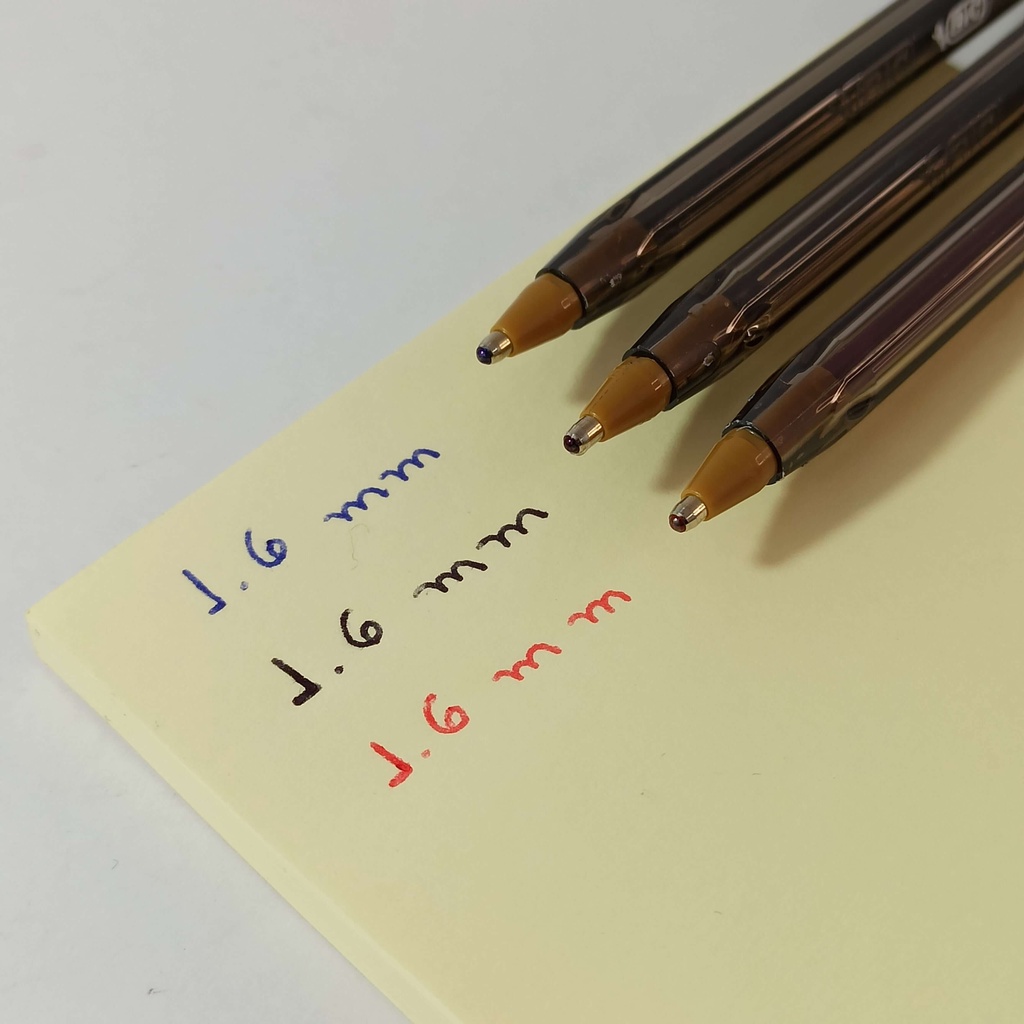 BIC
1.6 mm
1.6 mm
1.6 mm